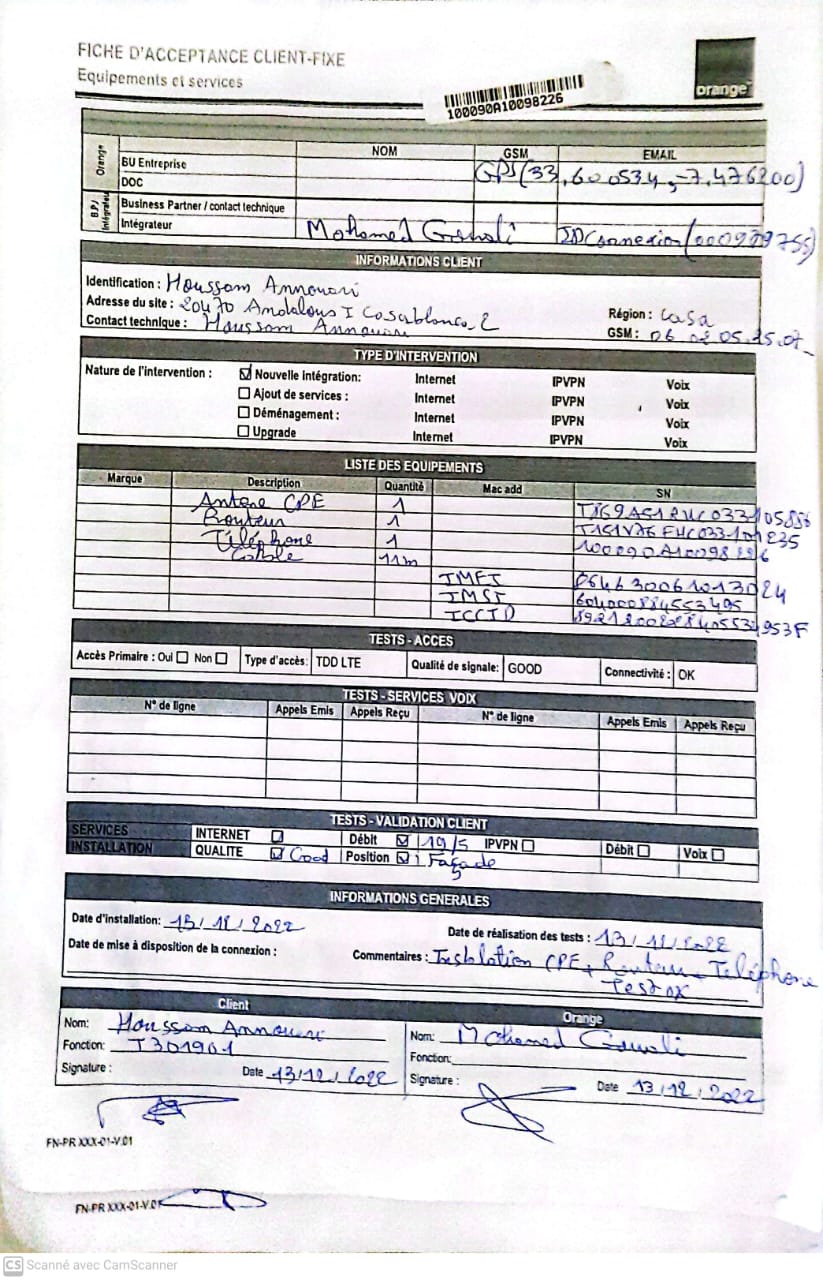 FICHE D'ACCEPTANCE CLIENT-FIXE
Equipements et services
orange™
100090A10098226
NOM GSM EMAIL
Orange
BU Entreprise GPS(33,600534,-7,476200)
DOC
B.P./ Intégrateur
Business Partner / contact technique
Intégrateur Mohamed ID Connexion (000979755)
INFORMATIONS CLIENT
Identification : Houssam Annouari
Adresse du site : 20470 Andalous I Casablanca 2 Région : Casa
Contact technique : Houssam Annouari GSM : 06 02 05.25.07
TYPE D'INTERVENTION
Nature de l'intervention : ☑ Nouvelle intégration: Internet IPVPN Voix
☐ Ajout de services : Internet IPVPN Voix
☐ Déménagement : Internet IPVPN Voix
☐ Upgrade Internet IPVPN Voix
LISTE DES EQUIPEMENTS
Marque Description Quantité Mac add SN
Antene CPE 1
Routeur 1
Téléphone 1 100090A10098226
Cable 11m
IMEI
IMSI 604000884553495
ICCID
TESTS - ACCES
Accès Primaire : Oui ☐ Non ☐ Type d'accès: TDD LTE Qualité de signale: GOOD Connectivité : OK
TESTS - SERVICES VOIX
N° de ligne Appels Emis Appels Reçu N° de ligne Appels Emis Appels Reçu
TESTS - VALIDATION CLIENT
SERVICES INTERNET ☐ Débit ☑ 19/5 IPVPN ☐ Débit ☐ Voix ☐
INSTALLATION QUALITE ☑ Good Position ☑ Façade
INFORMATIONS GENERALES
Date d'installation: 13/12/2022 Date de réalisation des tests : 13/12/2022
Date de mise à disposition de la connexion : Commentaires : Installation CPE + Routeur + Téléphone
Test ok
Client Orange
Nom: Houssam Annouari Nom: Mohamed
Fonction: J301901 Fonction:
Signature : Date 13/12/2022 Signature : Date 13/12/2022
FN-PR XXX-01-V.01
FN-PR XXX-01-V.01
CS Scanné avec CamScanner